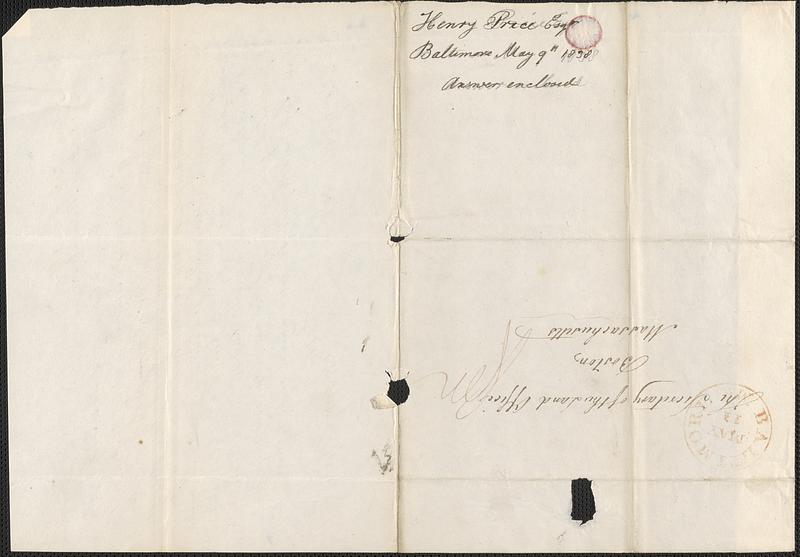 Henry Price Esqr
Baltimore May 9th 1838
Answer enclosed
The Secretary of the Land Office
Boston,
Massachusetts
BALTIMORE
MAY